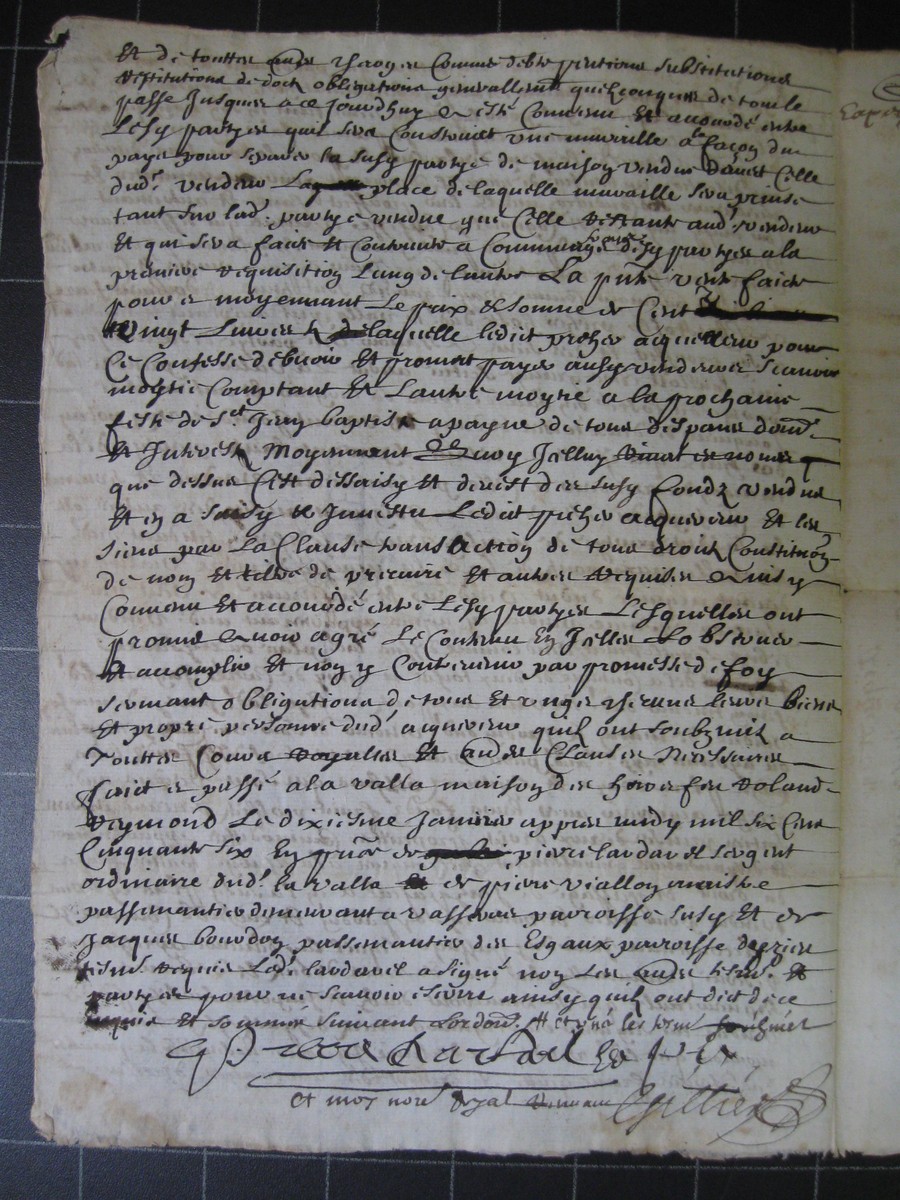 Et de touttes autres charges comme debtes pentions substitutions
restitutions de docts obligations generallemt quelconques de tout le
passé jusques a ce jourdhuy & esté convenu et accordé entre
lesd partyes quil sera construict une muraille a la façon du
pays pour separer la susd partye de maison vendue davec celle
dudt vendeur la place de laquelle muraille sera prinse
tant sur lade partye vendue que celle restante audt vendeur
et qui sera faicte et construicte a communs desd partyes a la
premiere requisition lung de lautre La pnte vente faicte
pour et moyennant le prix & somme de cent
vingt livres laquelle ledict acquereur pour
ce confesse debvoir et promect payer ausd vendeur scavoir
moytie comptant et lautre moytié a la prochaine
feste de St Jean baptiste a payne de tous despans dom
et interests Moyennant quoy Icelluy
que dessus sest dessaisy et devest des susd fondz vendus
et en a saisy & investu ledict acquereur et les
siens par la clause translaction de tous droicts constituon
de nom et tiltre de precaire et autres requises & ainsy
convenu et accordé entre lesd partyes lesquelles ont
promis avoir agré le contenu en Icelles lobserver
et accomplir et non y contrevenir par promesse de foy
serment obligations de tous et ungs chescuns leurs biens
et propre personne dudt acquereur quils ont soubzmis a
touttes cours royalles et autres clauses necessaires
faict et passé a la valla maison des hoirs feu Roland
Reymond le dixiesme janvier appres midy mil six cens
cinquante six en pnce de pierre lardavel sergent
ordinaire dudt la valla et de pierre viallon maistre
passemantier demeurant a parroisse susd et de
Jacques bourdon passemantier des Esgaux parroisse
tesms requis Ledt lardavel a signé non les autres tesms &
partyes pour ne scavoir escrire ainsy quils ont dict de ce
requis et sommés suivant lordonce
lardavel
et moy nore royal